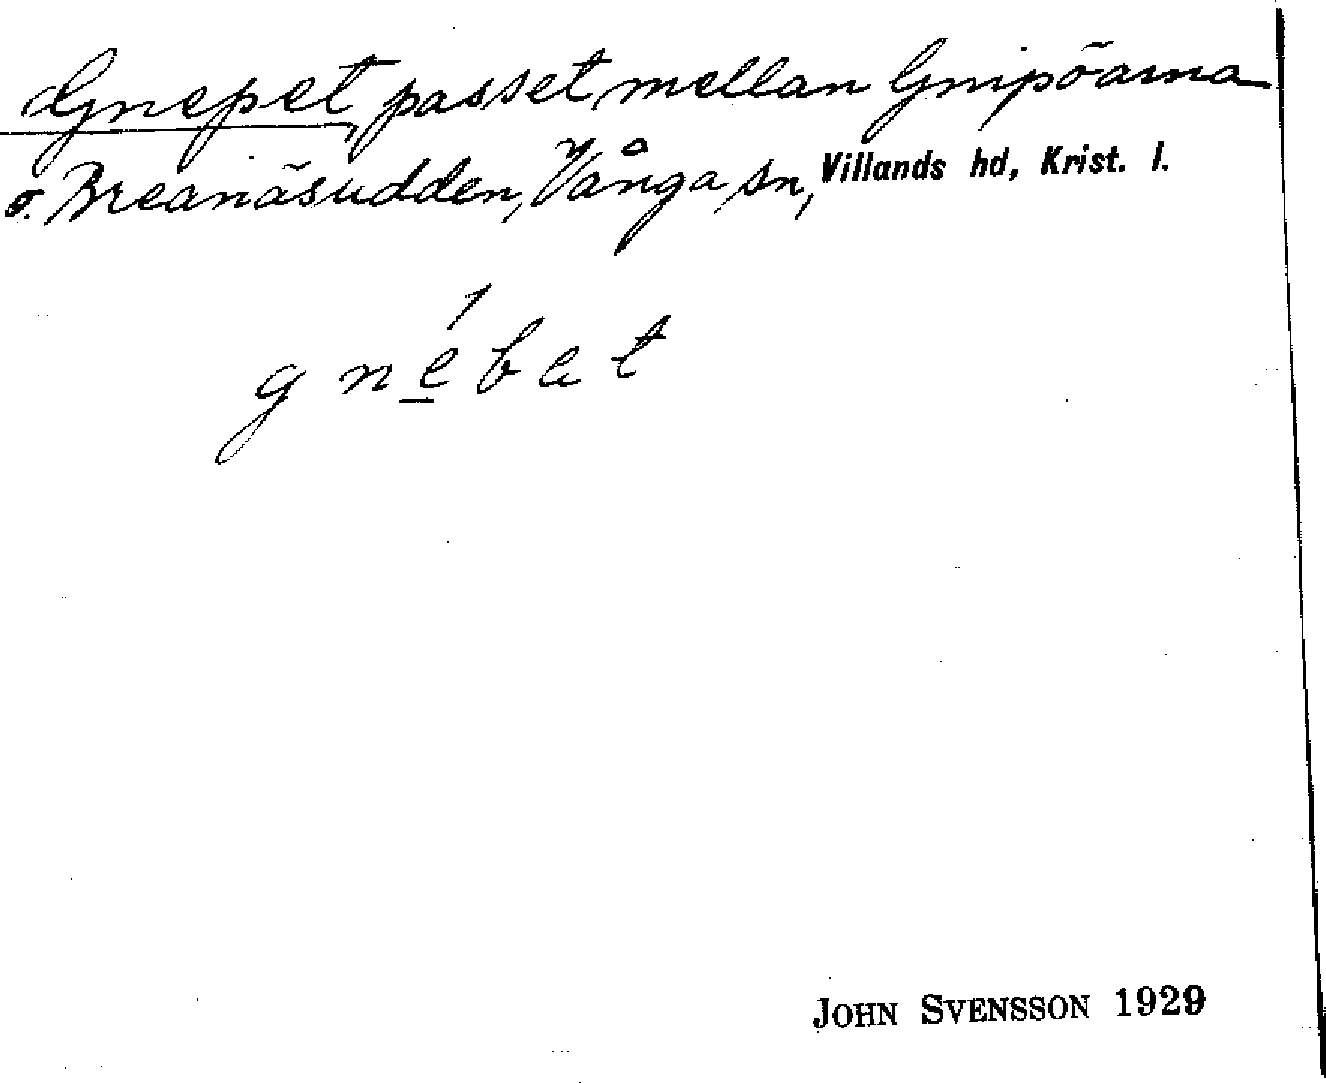 Gnepet, passet mellan Gnipöarna
o. Breanäsudden, Vånga sn, Villands hd, Krist. l.
gnébet
JOHN SVENSSON 1929